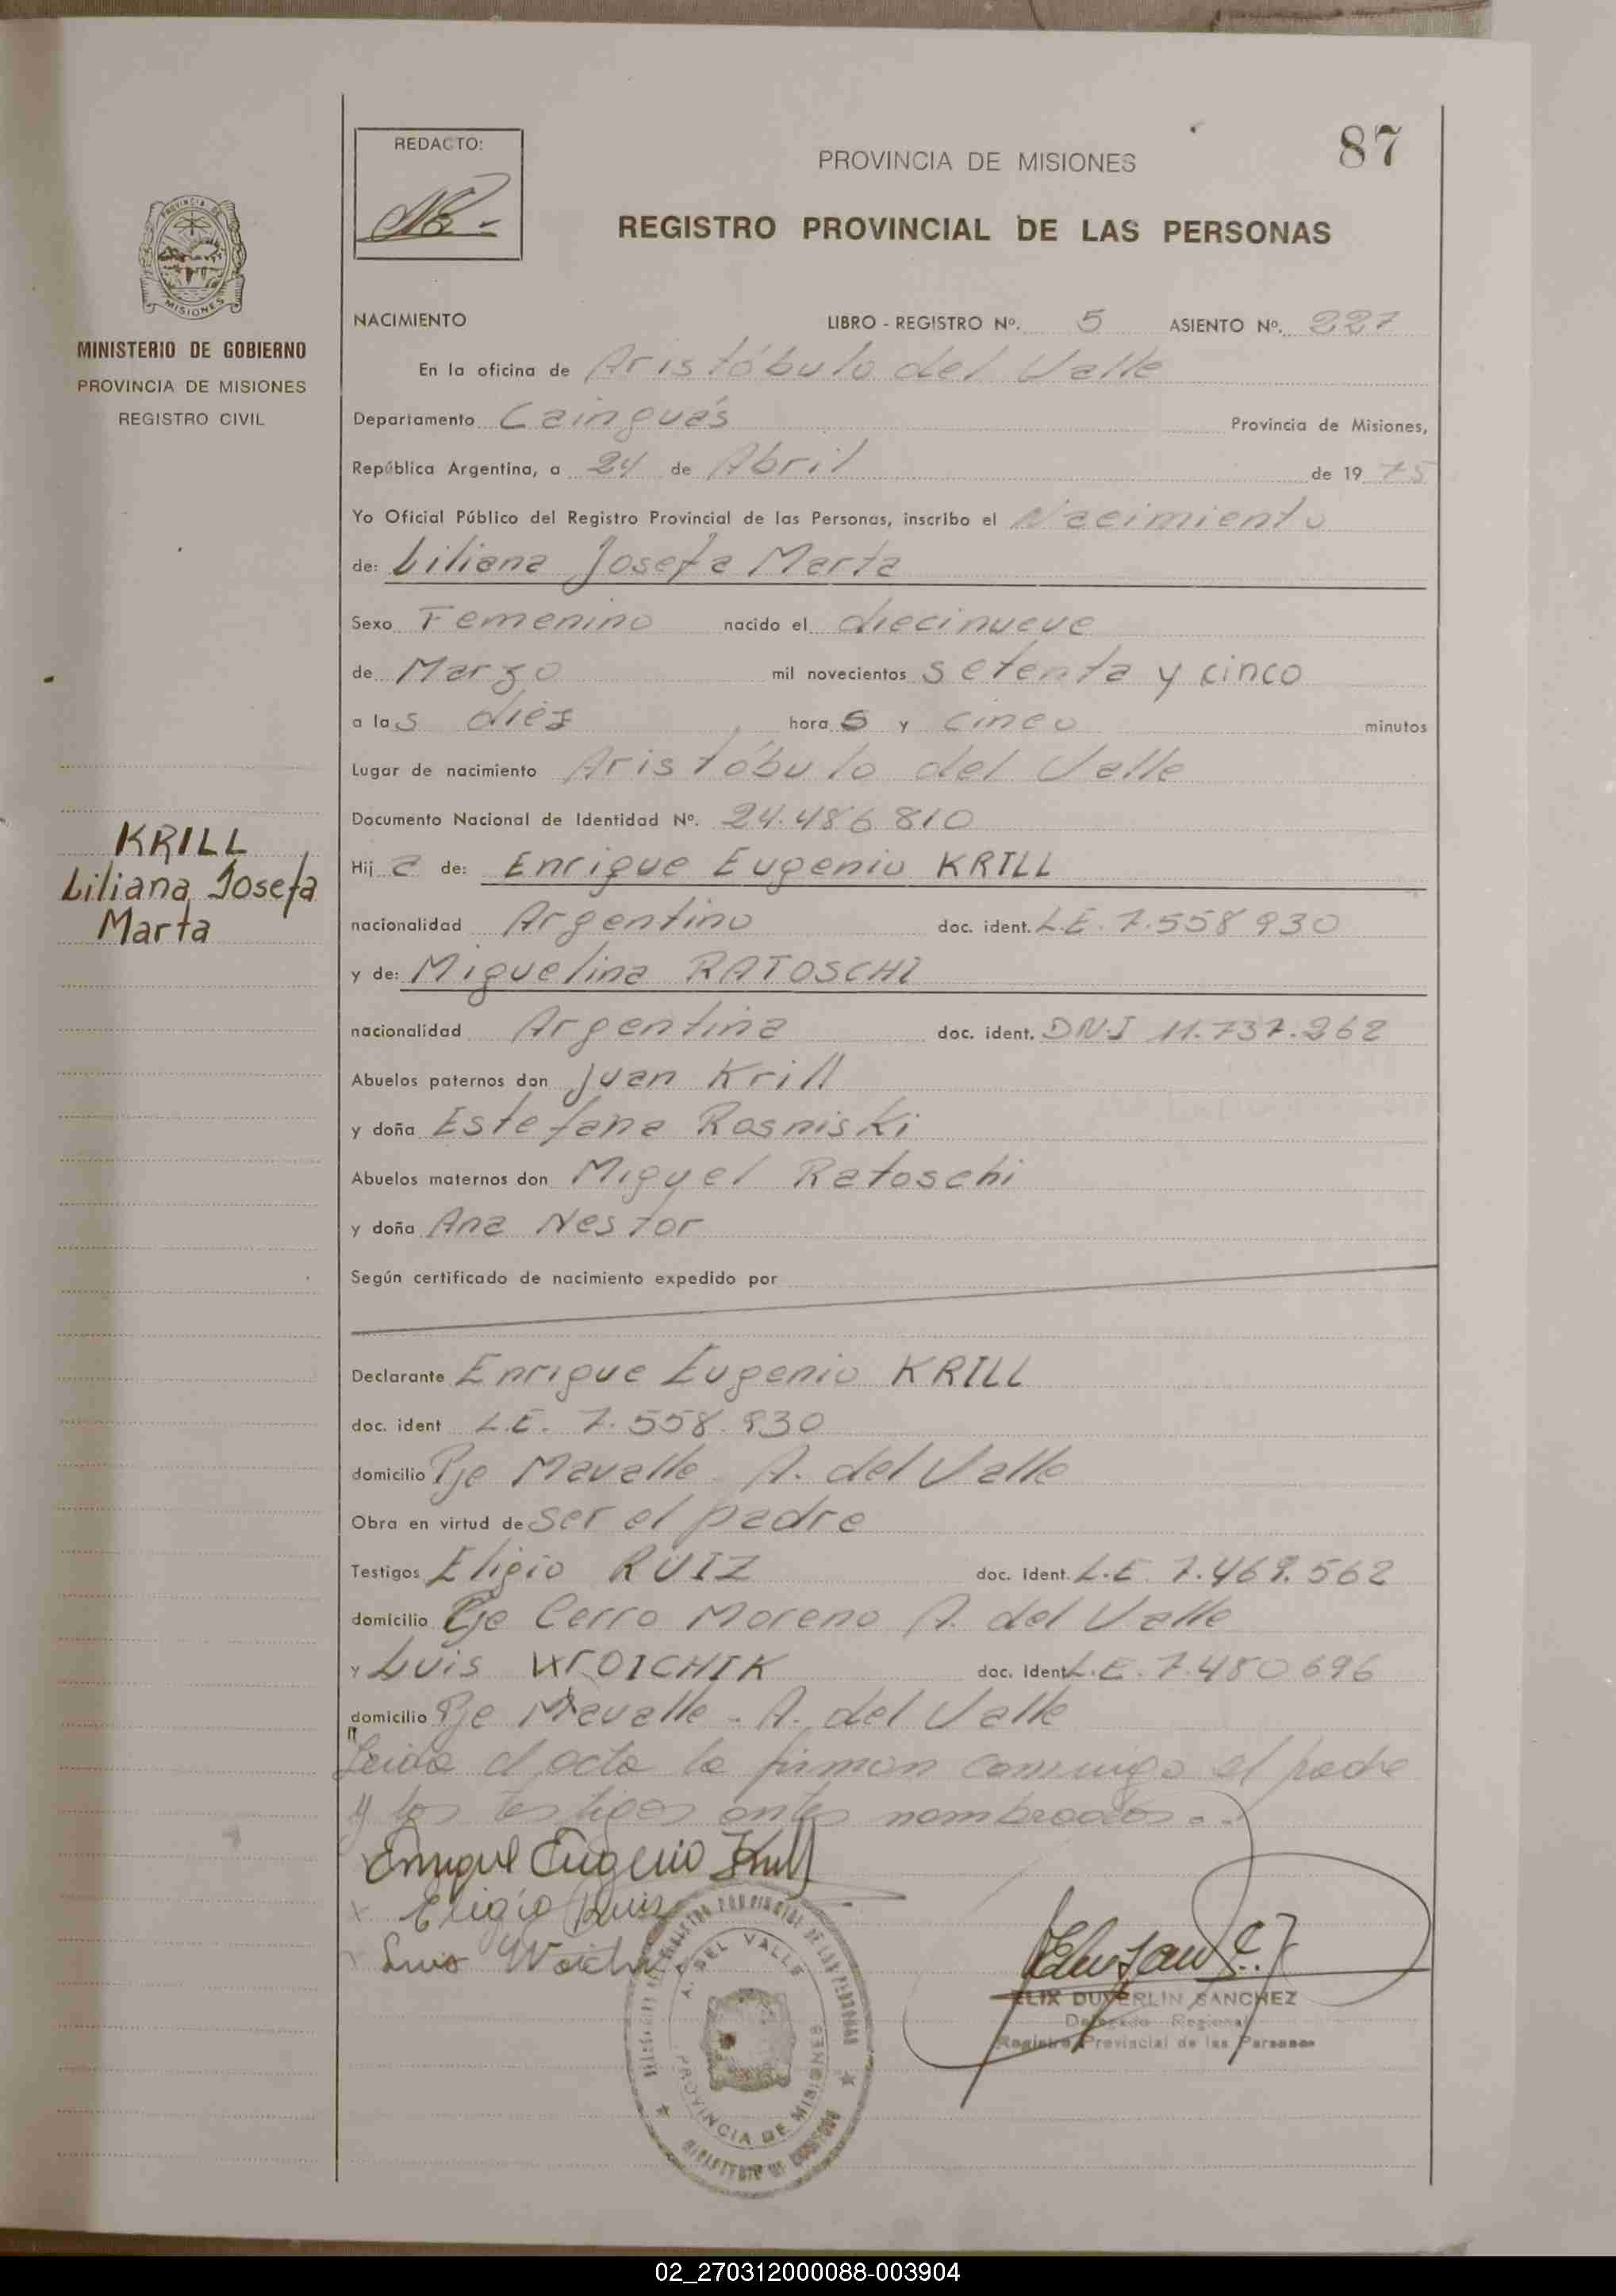 87
REDACTO:
PROVINCIA DE MISIONES
REGISTRO PROVINCIAL DE LAS PERSONAS
PROVINCIA DE
MISIONES
MINISTERIO DE GOBIERNO
PROVINCIA DE MISIONES
REGISTRO CIVIL
KRILL
Liliana Josefa
Marta
NACIMIENTO LIBRO - REGISTRO Nº. 5 ASIENTO Nº. 227
En la oficina de Aristóbulo del Valle
Departamento Cainguás Provincia de Misiones,
República Argentina, a 24 de Abril de 19 75
Yo Oficial Público del Registro Provincial de las Personas, inscribo el Nacimiento
de: Liliana Josefa Marta
Sexo Femenino nacido el diecinueve
de Marzo mil novecientos setenta y cinco
a las diéz horas y cinco minutos
Lugar de nacimiento Aristóbulo del Valle
Documento Nacional de Identidad Nº. 24.486810
Hija de: Enrique Eugenio KRILL
nacionalidad Argentino doc. ident. L.E. 7.558930
y de: Miguelina RATOSCHI
nacionalidad Argentina doc. ident. DNI 11.737.262
Abuelos paternos don Juan Krill
y doña Estefana Rosniski
Abuelos maternos don Miguel Ratoschi
y doña Ana Nestor
Según certificado de nacimiento expedido por
Declarante Enrique Eugenio KRILL
doc. ident L.E. 7.558.930
domicilio Pje Mavalle. A. del Valle
Obra en virtud de ser el padre
Testigos Eligio RUIZ doc. Ident. L.E. 7.469.562
domicilio Pje Cerro Moreno A. del Valle
y Luis WOICHIK doc. Ident L.E. 7.480696
domicilio Pje Mavalle - A. del Valle
Leida el acta la firman conmigo el padre
y los testigos antes nombrados.-
Enrique Eugenio Krill
x Eligio Ruiz
x Luis
PROVINCIAL DE LAS PERSONAS
A. DEL VALLE
PROVINCIA DE MISIONES
ELIX DUVERLIN SANCHEZ
Delegado Regional
Registro Provincial de las Personas
02_270312000088-003904